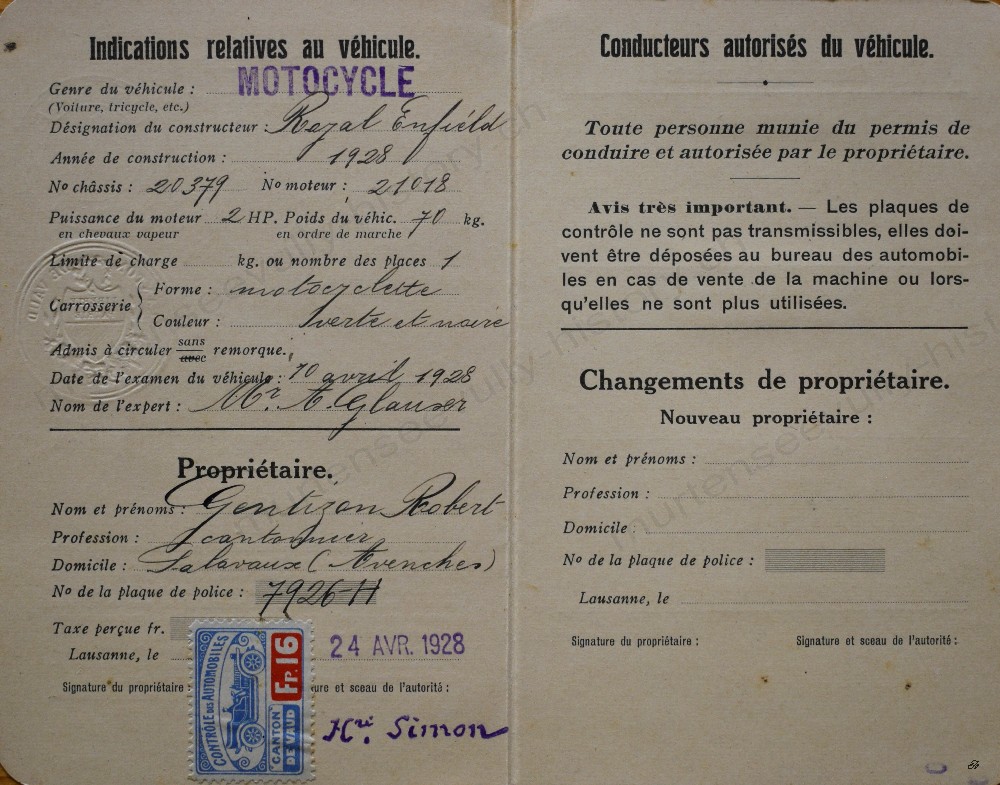 Indications relatives au véhicule.
Genre du véhicule : MOTOCYCLE
(Voiture, tricycle, etc.)
Désignation du constructeur : Royal Enfield
Année de construction : 1928
No châssis : 20379 No moteur : 21018
Puissance du moteur 2 HP. Poids du véhic. 70 kg.
en chevaux vapeur en ordre de marche
Limite de charge kg. ou nombre des places 1
Carrosserie { Forme : motocyclette
Couleur : verte et noire
Admis à circuler sans avec remorque.
Date de l'examen du véhicule : 10 avril 1928
Nom de l'expert : Mr. A. Glauser
Propriétaire.
Nom et prénoms : Gentizon Robert
Profession : cantonnier
Domicile : Salavaux (Avenches)
No de la plaque de police : 7926-H
Taxe perçue fr.
Lausanne, le 24 AVR. 1928
Signature du propriétaire : ure et sceau de l'autorité :
CONTRÔLE DES AUTOMOBILES
CANTON DE VAUD
Fr. 16
Hri. Simon
Conducteurs autorisés du véhicule.
Toute personne munie du permis de
conduire et autorisée par le propriétaire.
Avis très important. — Les plaques de
contrôle ne sont pas transmissibles, elles doi-
vent être déposées au bureau des automobi-
les en cas de vente de la machine ou lors-
qu'elles ne sont plus utilisées.
Changements de propriétaire.
Nouveau propriétaire :
Nom et prénoms :
Profession :
Domicile
No de la plaque de police :
Lausanne, le
Signature du propriétaire : Signature et sceau de l'autorité :